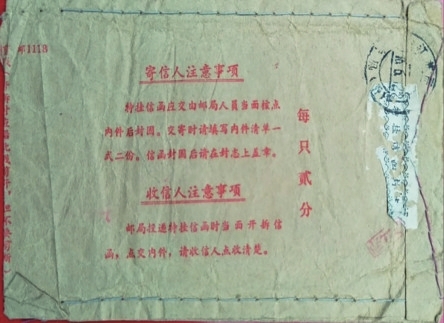 邮111B
寄信人注意事项
特挂信函应交由邮局人员当面检点
内件后封固。交寄时请填写内件清单一
式二份。信函封固后请在封志上盖章。
收信人注意事项
邮局投递特挂信函时当面开拆信
函，点交内件，请收信人点收清楚。
每只贰分